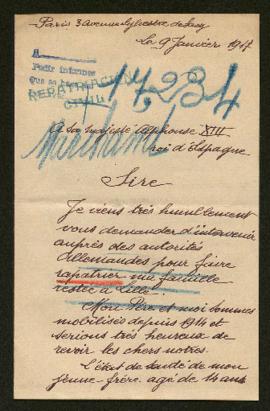 Paris 3 avenue Sylvestre de Sacy
Le 9 Janvier 1917
A
Pedir informes
que se
REPATRIACION
CIVIL
17.234
A Sa Majesté Alphonse XIII
roi d'Espagne
Sire
Je viens très humblement
vous demander d'intervenir
auprès des autorités
Allemandes pour faire
rapatrier ma famille
restée à Lille.
Mon Père et moi sommes
mobilisés depuis 1914 et
serions très heureux de
revoir les chers notres.
L'état de santé de mon
jeune frère agé de 14 ans